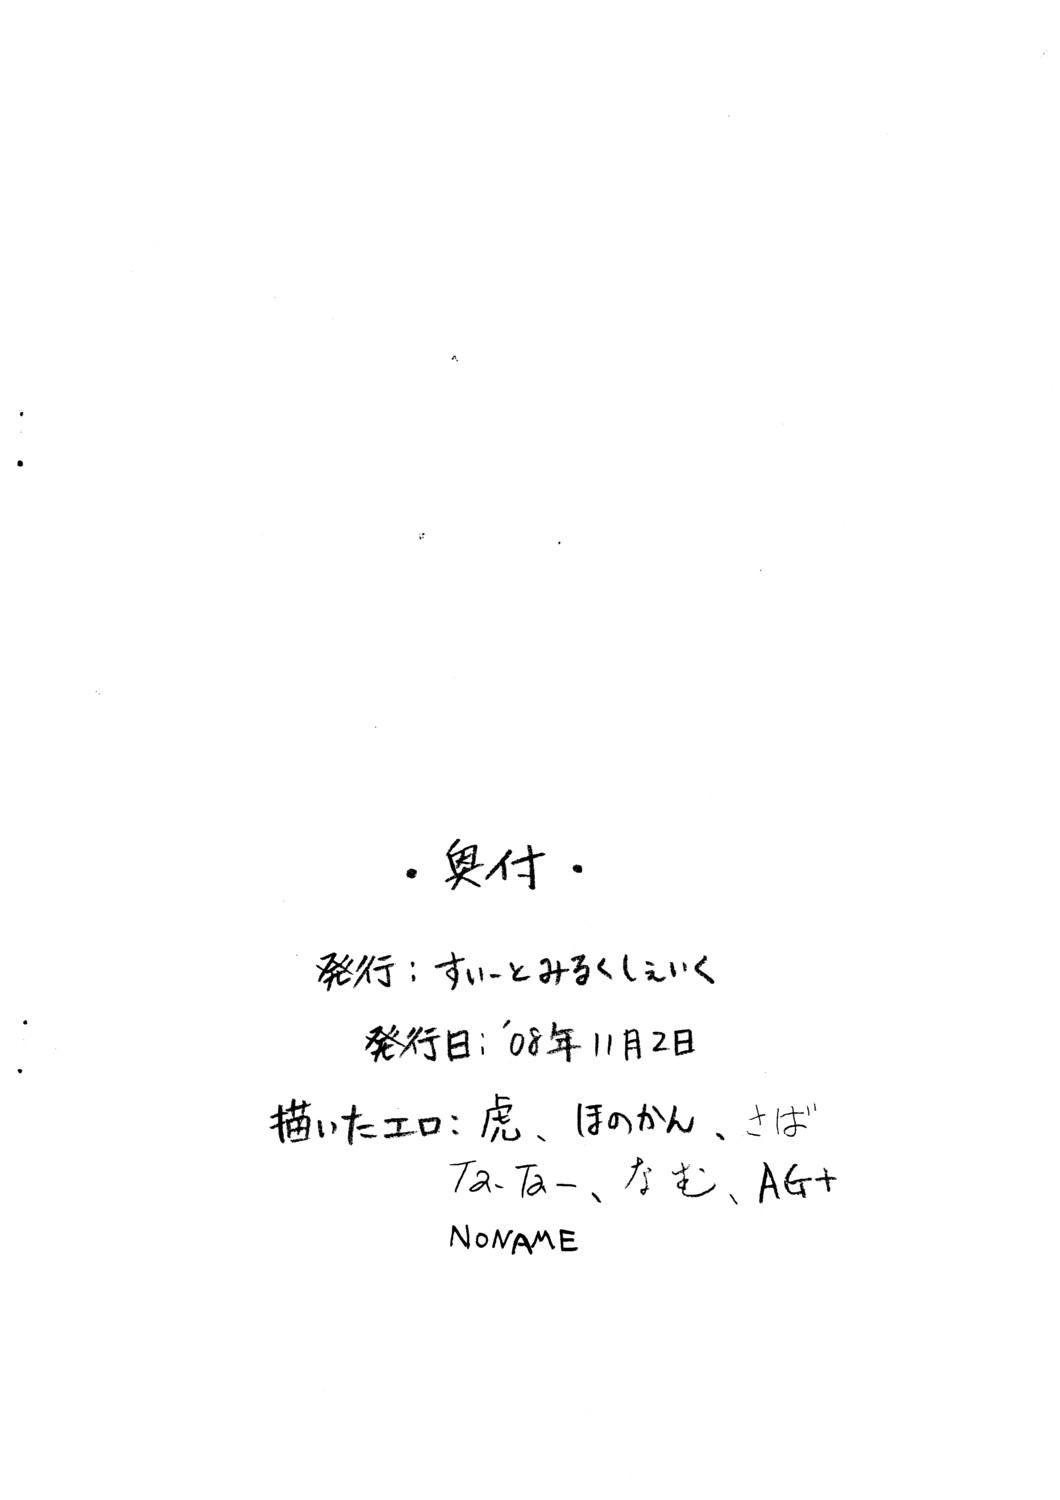 ・奥付・
発行：すいーとみるくしぇいく
発行日：'08年11月2日
描いたエロ：虎、ほのかん、さば
Ta-Taー、なむ、AG+
NONAME